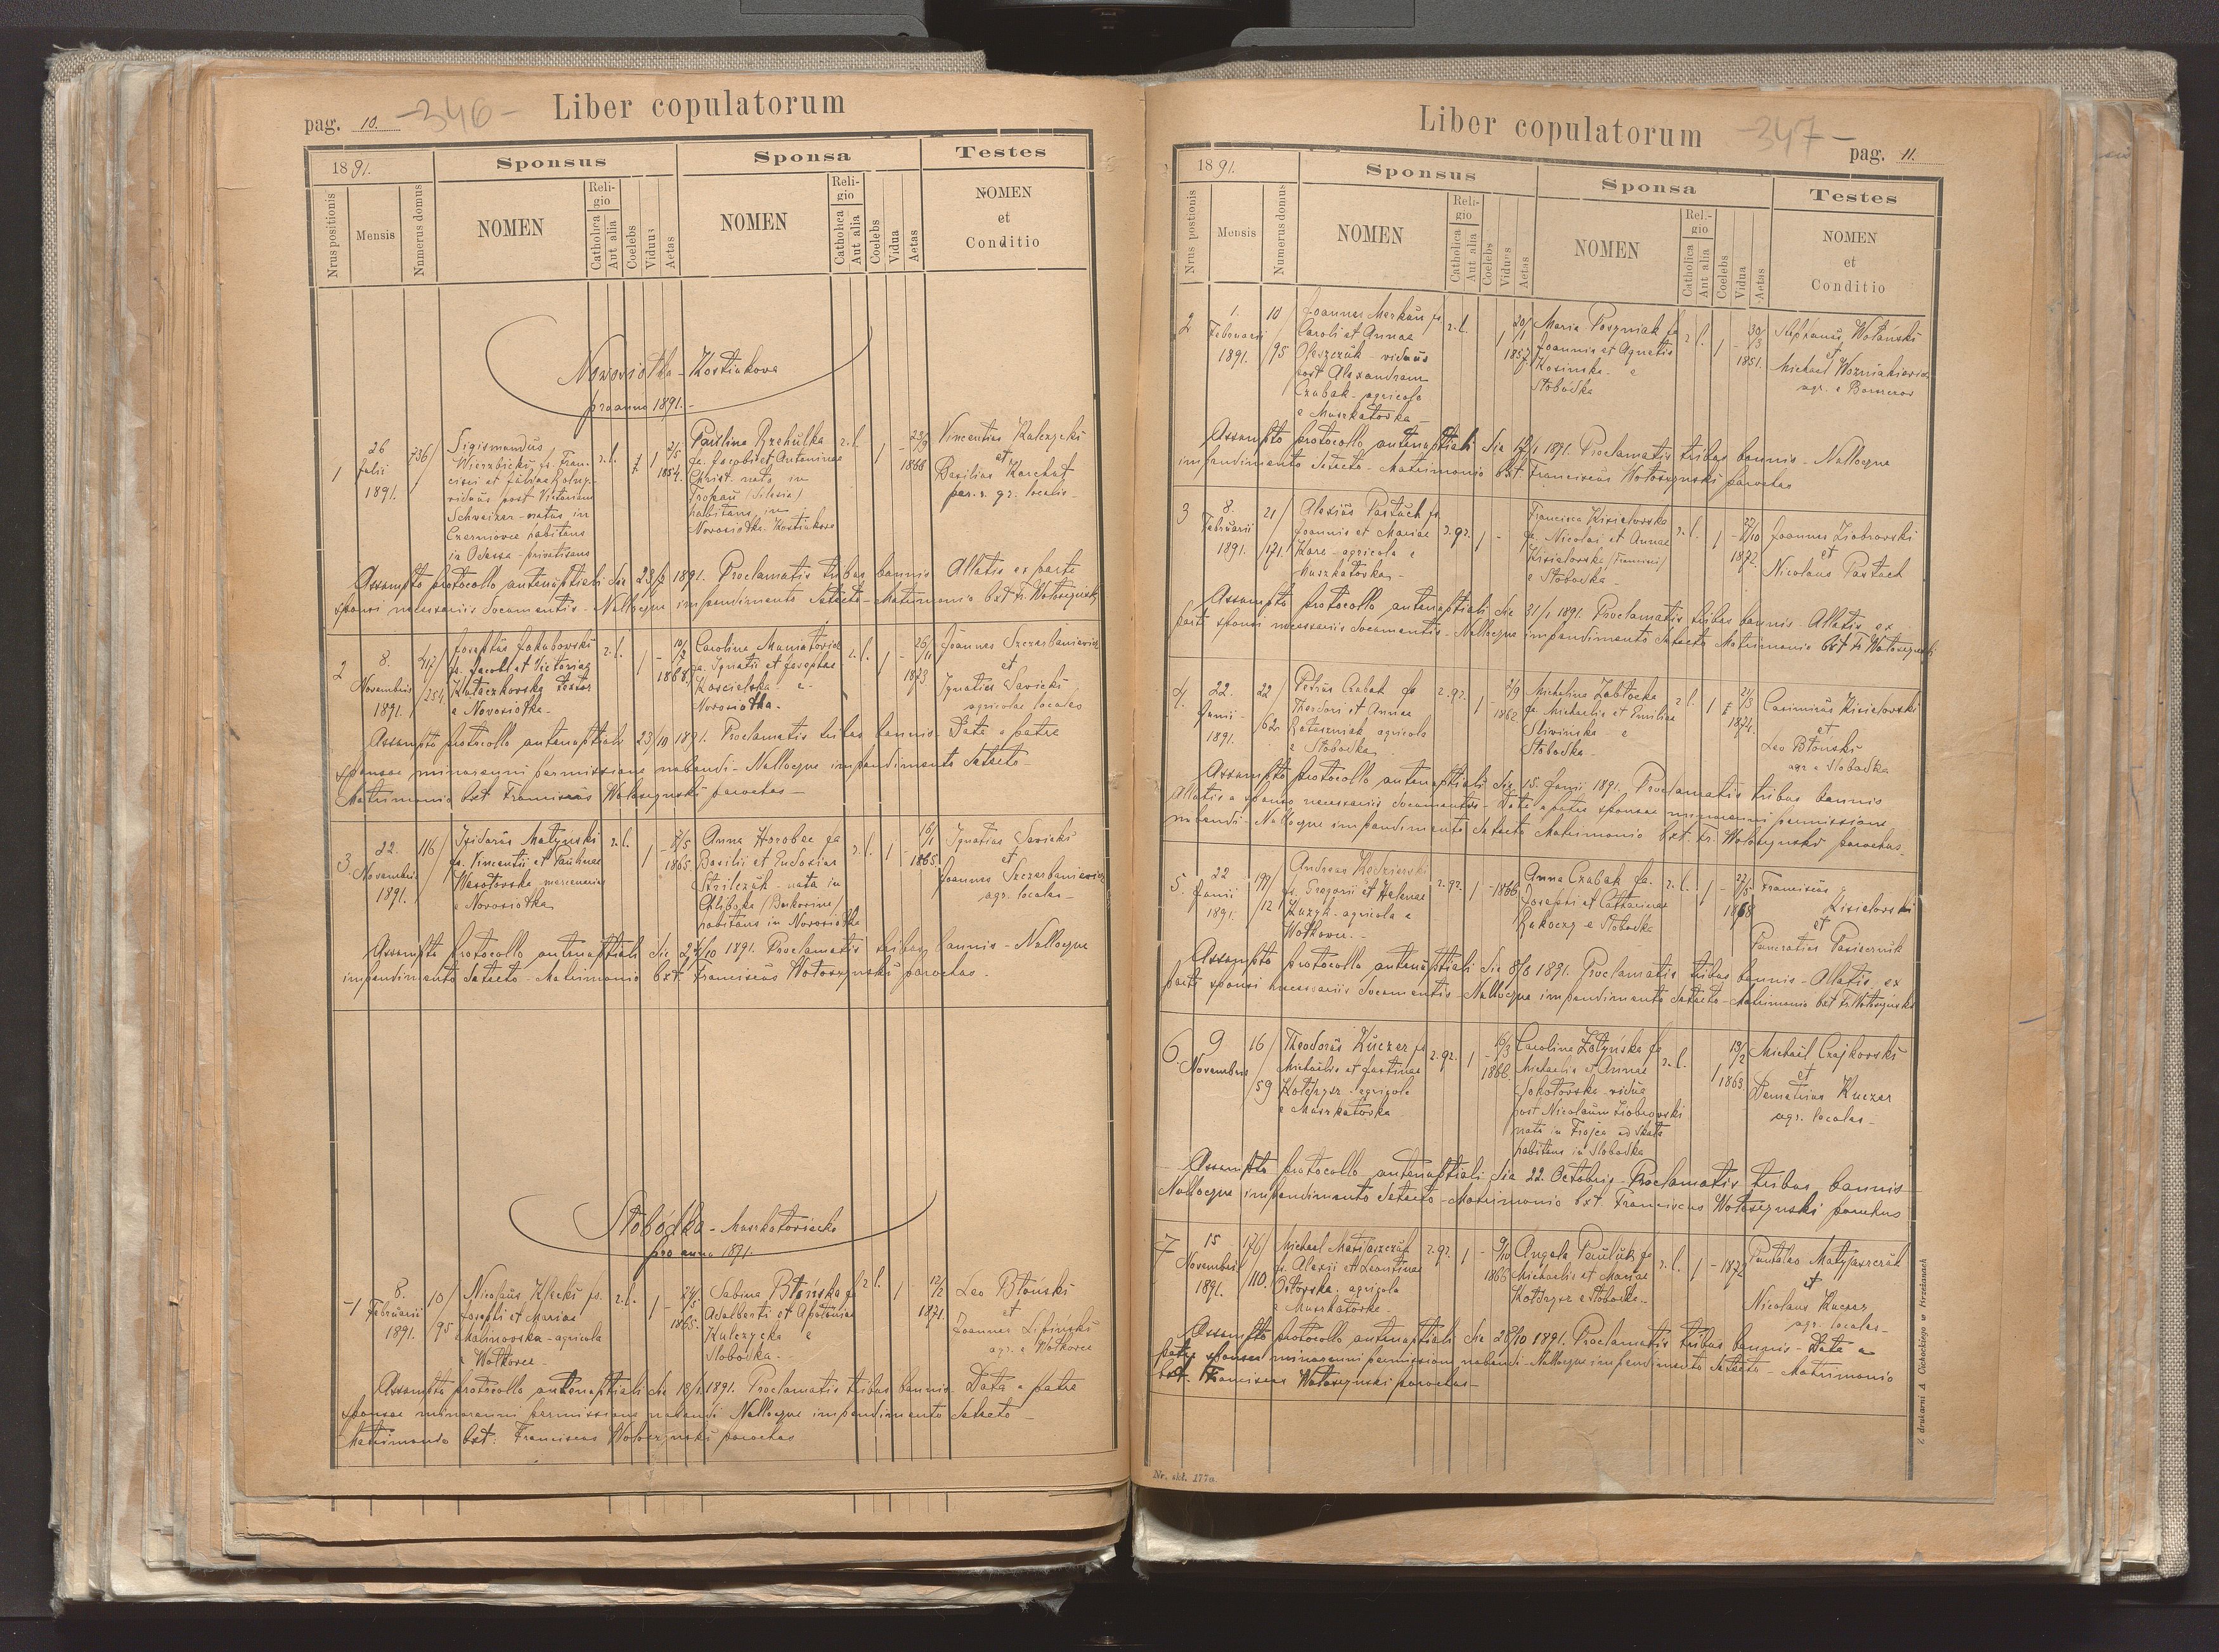 pag. 10. -346- Liber copulatorum
1891. Sponsus Sponsa Testes
Nrus positionis Mensis Numerus domus NOMEN Religio Catholica Aut alia Coelebs Viduus Aetas NOMEN Religio Catholica Aut alia Coelebs Vidua Aetas NOMEN et Conditio
Nowosiołka-Kostiukowa
pro anno 1891.-
1
26
Julii
1891.
736/
Sigismundus
Wierzbicki, fs. Fran-
cisci et
viduus post Victoriam
Schweizer - natus in
Czernovce habitans
in Odessa - privatisans
r.l.
1
2/5
1854.
Paulina Rzehulka
fa. Jacobi et Antoninae
Christ. nata in
Tropau (Silesia)
habitans in
Novosiołka-Kostiukova
r.l.
1 -
23/9
1868
Vincentius Kulczycki
et
Basilius Korchut
par. r. gr. localis -
Assumpto protocollo antenuptiali die 23/7 1891. Proclamatis tribus bannis - Allatis ex parte
sponsi necessariis documentis - Nulloque impendimento detecto - Matrimonio bxt Fr. Wołoszynski
2
8.
Novembris
1891.
47/
254.
Josephus Jakubowski
fs. Jacobi et Victoriae
Kułaczkowska textor
e Novosiołka -
r.l.
1 -
10/2
1868.
Carolina Muniatovicz
fa. Ignatii et Josephae
Koscielska - e
Novosiołka -
r.l.
1 -
26/11
1873
Joannes Szczerbaniewicz
et
Ignatius Savicki
agricolae locales
Assumpto protocollo antenuptiali 23/10 1891. Proclamatis tribus bannis - Data a patre
sponsae minorenni permissione nubendi - Nulloque impendimento detecto -
Matrimonio bxt Franciscus Wołoszynski parochus -
3.
22.
Novembris
1891.
116/
Isidorus Matynski
fs. Vincentii et Paulinae
Wesołovska mercenarius
e Novosiołka
r.l.
1 -
4/5
1865.
Anna Horobec fa
Basilii et Eudoxiae
Strilczuk - nata in
Chliboka (Bukovina)
habitans in Novosiołka
r.l.
1 -
16/1
1865
Ignatius Savicki
et
Joannes Szczerbaniewicz
agr. locales -
Assumpto protocollo antenuptiali die 24/10 1891. Proclamatis tribus bannis - Nulloque
impendimento detecto - Matrimonio bxt Franciscus Wołoszynski parochus -
Słobódka - Muszkatoviecka
pro anno 1891.
-1
8.
Februarii
1891.
10/
95
Nicolaus Klecki fs.
Josephi et Mariae
Malinovska - agricola
e Wołkovce -
r.l.
1 -
24/5
1865.
Sabina Błońska fa
Adalberti et Apoloniae
Kulczycka e
Slobodka -
r.l.
1 -
12/12
1871.
Leo Błoński
et
Joannes Lipinski
agr. e Wołkovce
Assumpto protocollo antenuptiali die 18/1 1891. Proclamatis tribus bannis - Data a patre
sponsae minorenni permissione nubendi Nulloque impendimento detecto -
Matrimonio bxt: Franciscus Wołoszynski parochus
Liber copulatorum -347- pag. 11.
1891. Sponsus Sponsa Testes
Nrus positionis Mensis Numerus domus NOMEN Religio Catholica Aut alia Coelebs Viduus Aetas NOMEN Religio Catholica Aut alia Coelebs Vidua Aetas NOMEN et Conditio
2
1.
Februarii
1891.
10
/95
Joannes Merkun fs
Caroli et Annae
Oleszczuk - viduus
post Alexandram
Czubak - agricola
e Muszkatovka -
r.l.
1
20/1
1857
Maria Pozyniak fa
Joannis et Agnetis
Kosinska - e
Słobodka
r.l.
1 -
30/3
1851.
Stephanus Wołański
et
Michael Wozniakiewicz
agr. e Borszczow
Assumpto protocollo antenuptiali die 17/1 1891. Proclamatis tribus bannis - Nulloque
impendimento detecto - Matrimonio bxt. Franciscus Wołoszynski parochus
3
8.
Februarii
1891.
21/
171.
Alexius Pastuch fs
Joannis et Mariae
Kare - agricola e
Muszkatovka -
r.gr.
1 -
Francisca Kisielovska
fa. Nicolai et Annae
Kisielovska
e Słobodka -
r.l.
1 -
27/10
1872.
Joannes Ziobrovski
et
Nicolaus Pastuch
Assumpto protocollo antenuptiali die 31/1 1891. Proclamatis tribus bannis - Allatis ex
parte sponsi necessariis documentis - Nulloque impendimento detecto Matrimonio bxt Fr Wołoszynski
4.
22.
Junii -
1891.
22/
62
Petrus Czubak fs
Theodori et Annae
Rataszniak agricola
e Słobodka
r.gr.
1 -
2/9
1862.
Michalina Zabłocka
fa. Michaelis et Emiliae
Slivinska - e
Słobodka -
r.l.
1
21/3
1874.
Casimirus Kisielovski
et
Leo Błoński
agr e Slobodka
Assumpto protocollo antenuptiali die 15. Junii 1891. Proclamatis tribus bannis
Allatis a sponso necessariis documentis - Data a patre sponsae minorenni permissione
nubendi - Nulloque impendimento detecto Matrimonio bxt. Fr. Wołoszynski parochus -
5.
22
Junii
1891.
197/
12
Andreas Kędzierski
fs. Gregorii et Helenae
Kuzyk - agricola e
Wołkovce. -
r.gr.
1 -
1866
Anna Czubak fa.
Josephi et Catharinae
Rakoczy e Słobodka
r.l.
1 -
22/5
1868
Franciscus
Kisielovski
et
Pancratius Pasiecznik
Assumpto protocollo antenuptiali die 8/6 1891. Proclamatis tribus bannis - Allatis ex
parte sponsi necessariis documentis - Nulloque impendimento detecto - Matrimonio bxt Fr Wołoszynski
6.
9
Novembris
16/
59
Theodorus Kuczer fs
Michaelis et Justinae
Kołdrysz - agricola
e Muszkatovka
r.gr.
1 -
16/3
1866.
Carolina Zołynska fa
Michaelis et Annae
Sokołovska - vidua
post Nicolaum Ziobrovski
nata in Trojca ad Skała
habitans in Slobodka
r.l.
1
13/2
1863
Michael Czajkovski
et
Demetrius Kuczer
agr. locales -
Assumpto protocollo antenuptiali die 22. Octobris - Proclamatis tribus bannis -
Nulloque impendimento detecto - Matrimonio bxt Franciscus Wołoszynski parochus
7
15
Novembris
1891.
176/
110.
Michael Matijaszczuk
fs. Alexii et Leontinae
Ostovska; agricola
e Muszkatovka -
r.gr.
1 -
9/10
1866
Angela Pauluk fa
Michaelis et Mariae
Kołdrysz e Słobodka -
r.l.
1 -
1872
Pantaleo Matyjaszczuk
et
Nicolaus Kuczer
agr. locales -
Assumpto protocollo antenuptiali die 28/10 1891. Proclamatis tribus bannis - Data a
patre sponsae minorenni permissione nubendi - Nulloque impendimento detecto - Matrimonio
bxt. Franciscus Wołoszynski parochus -
Nr. skł. 177a.
Z drukarni A Cichockiego w Brzeżanach